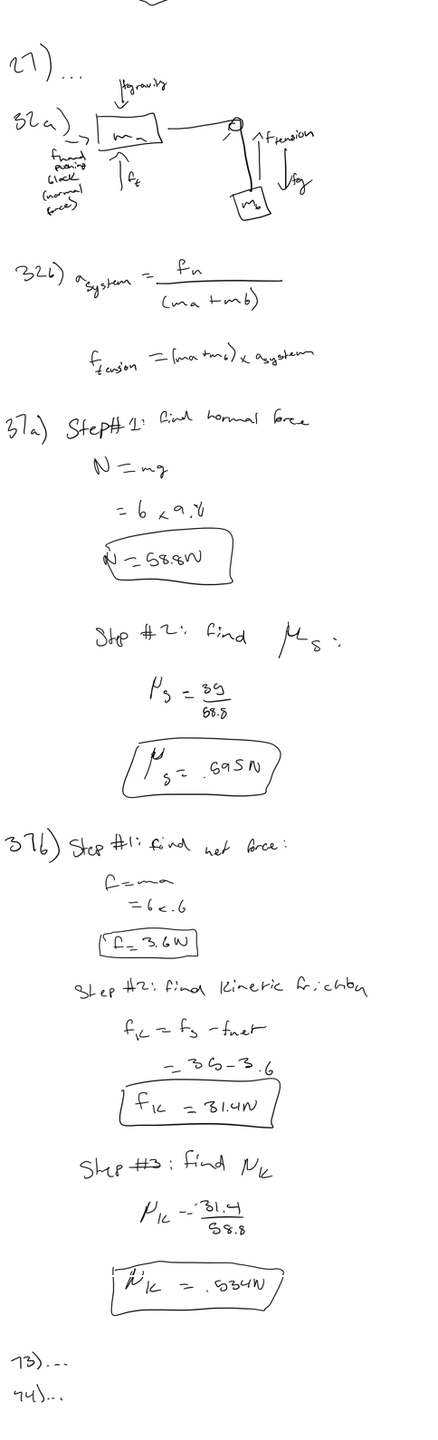 27)...
fgravity
32a)
ma
fhand
pushing
block
(normal
force)
ft
ftension
fg
mb
32b) asystem = fn
(ma + mb)
ftension = (ma+mb) x asystem
37a) Step# 1: find normal force
N = mg
= 6 x 9.8
N = 58.8N
Step #2: find μs:
μs = 35
58.8
μs = .595N
37b) Step #1: find net force:
f = ma
= 6 x .6
f = 3.6N
Step #2: find kinetic friction
fk = fs - fnet
= 35-3.6
fk = 31.4N
Step #3: find μk
μk = 31.4
58.8
μk = .534N
73)...
74)...